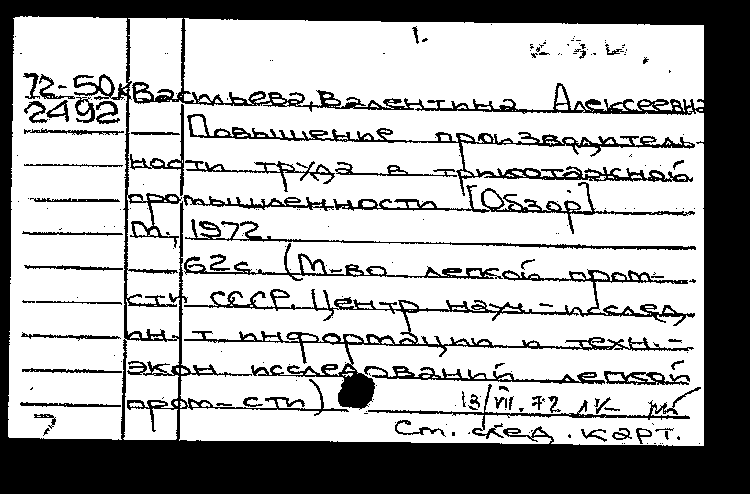 1.
К.З.И.
72-50к Васильева, Валентина Алексеевна
2492
Повышение производитель-
ности труда в трикотажной
промышленности [Обзор]
М., 1972.
62с. (М-во легкой пром-
сти СССР. Центр науч.-исслед.
ин-т информации и техн.-
экон. исследований легкой
пром-сти)
13/VII.72
См. след. карт.
7